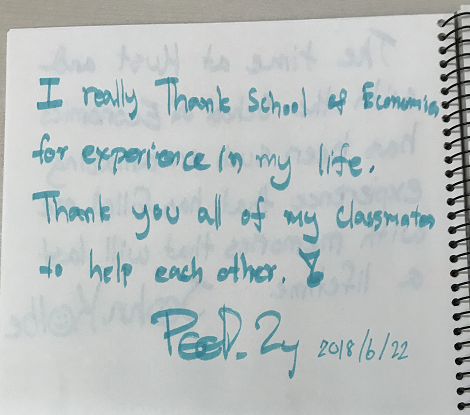 I really Thank School of Economics
for experience in my life.
Thank you all of my classmates
to help each other.
2018/6/22